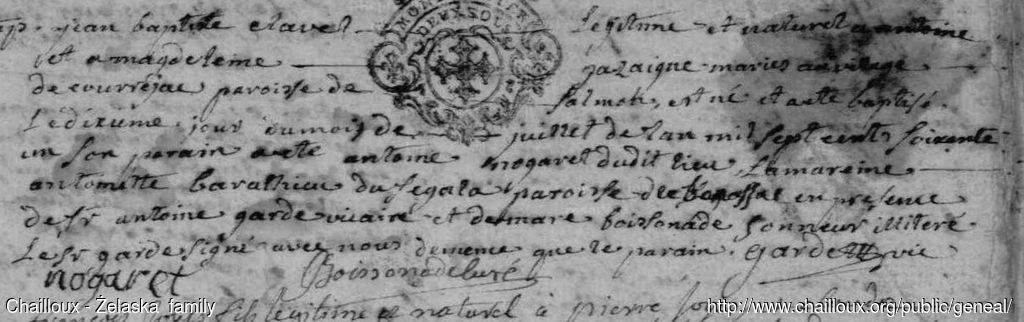 jean baptiste clavel legitime et naturel a antoine
et a magdeleine jazaigne maries au vilage
de courrejac paroisse de salmon, est né et a ete baptisé
Le dixieme jour du mois de juillet de lan mil sept cent soixante
un son parain a ete antoine nogaret dudit lieu, La mareine
antoinette barathieu du segala paroisse de en presence
de sr antoine garde vicaire et de mare boissonade sonneur illiteré
Le sr garde signé avec nous de meme que le parain. garde vic
nogaret Boissonade curé
legitime et naturel à pierre
Chailloux - Żelaska family http://www.chailloux.org/public/geneal/